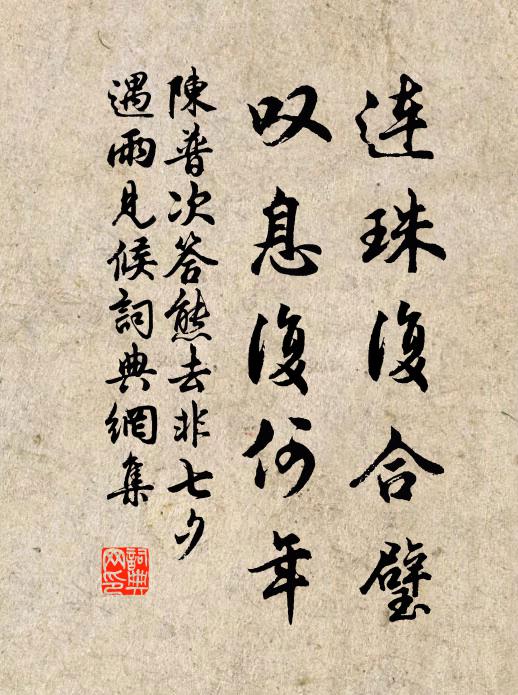 连珠復合璧
叹息復何年
陳普次答熊去非七夕
遇雨見候詞典網集
詞典网印